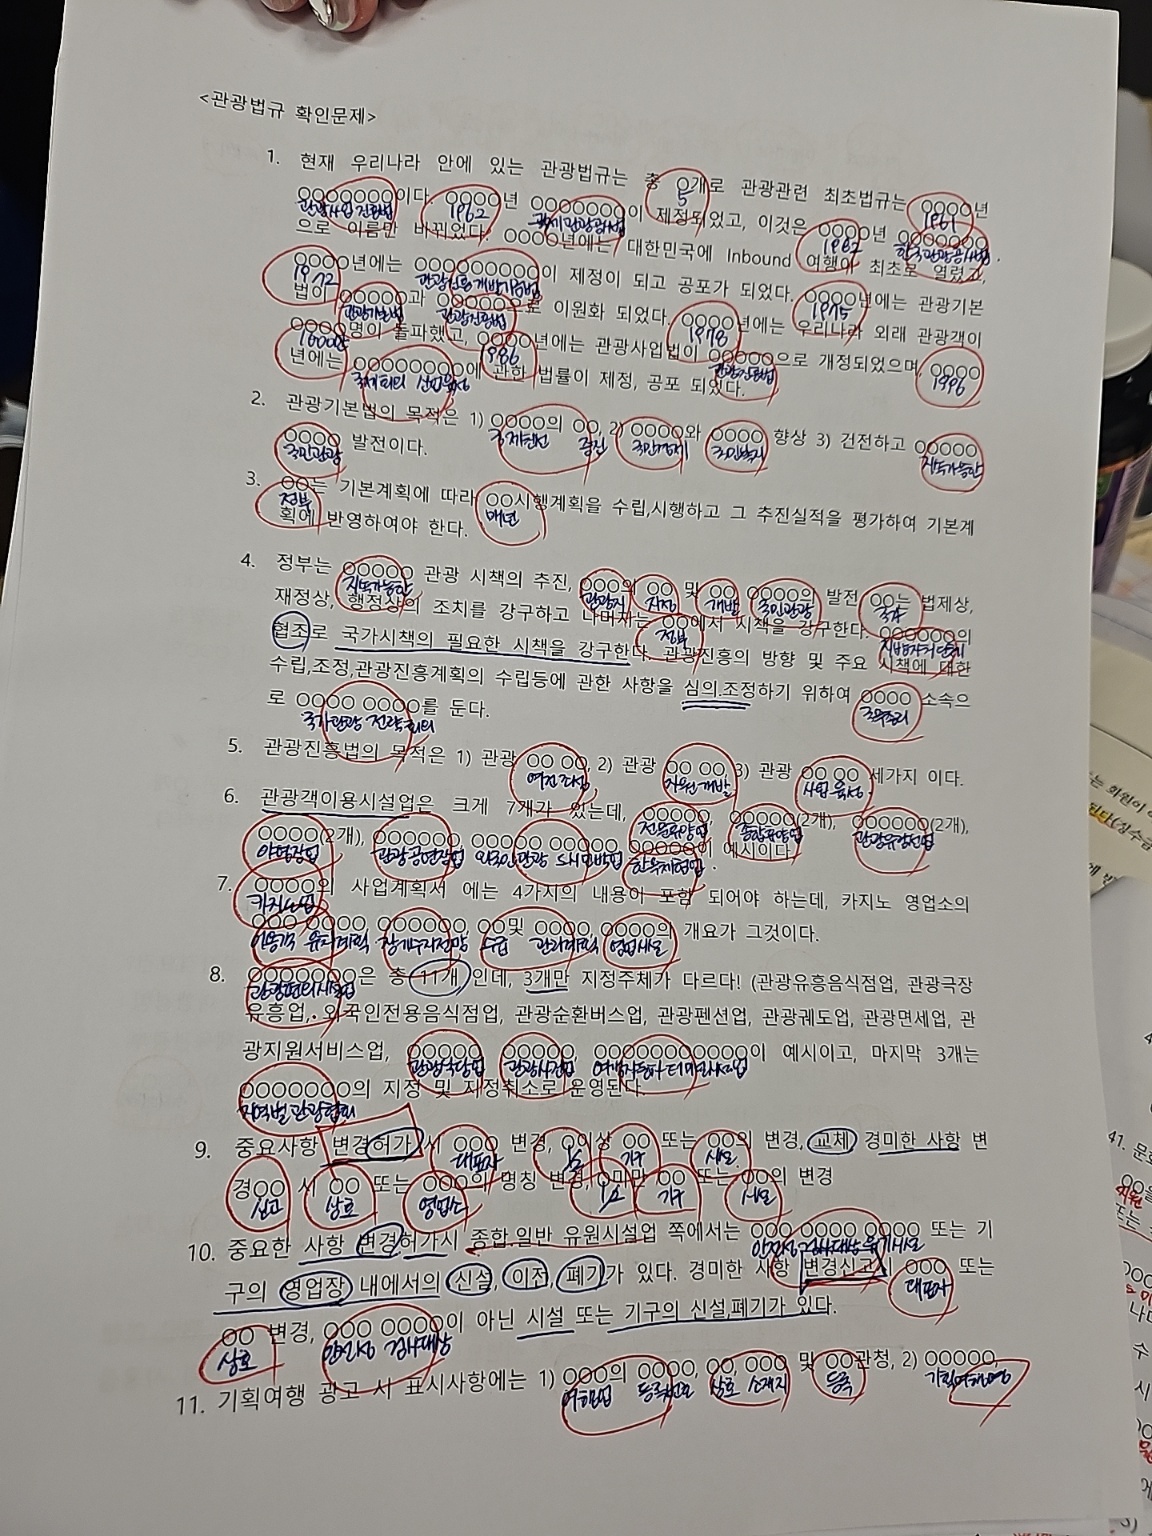 <관광법규 확인문제>
1. 현재 우리나라 안에 있는 관광법규는 총 O개로 관광관련 최초법규는 OOOO년
5
OOOOOOO이다. OOOO년 OOOOOOO이 제정되었고, 이것은 OOOO년 OOOOOOO
관광사업진흥법 1962 1961
으로 이름만 바뀌었다. OOOO년에는 대한민국에 Inbound 여행이 최초로 열렸고,
1962 한국관광공사법
OOOO년에는 OOOOOOOOO이 제정이 되고 공포가 되었다. OOOO년에는 관광기본
1972 관광진흥개발기금법 1975
법이 OOOOO과 OOOOO으로 이원화 되었다. OOOO년에는 우리나라 외래 관광객이
관광기본법 1978
OOOO명이 돌파했고, OOOO년에는 관광사업법이 OOOOO으로 개정되었으며, OOOO
100만 1986 관광진흥법 1996
년에는 OOOOOOOO에 관한 법률이 제정, 공포 되었다.
국제회의 산업육성
2. 관광기본법의 목적은 1) OOOO의 OO, 2) OOOO와 OOOO 향상 3) 건전하고 OOOOO
국제친선 증진 국민경제 국민복지 지속가능한
OOOO 발전이다.
국민관광
3. OO는 기본계획에 따라 OO시행계획을 수립,시행하고 그 추진실적을 평가하여 기본계
정부 매년
획에 반영하여야 한다.
4. 정부는 OOOOO 관광 시책의 추진, OOO의 OO 및 OO OOOO의 발전 OO는 법제상,
지속가능한 관광지 지정 개발 국민관광 국가
재정상, 행정상의 조치를 강구하고 나머지는 OO에서 시책을 강구한다. OOOOOO의
정부 지방자치단체
협조로 국가시책의 필요한 시책을 강구한다. 관광진흥의 방향 및 주요 시책에 대한
수립,조정,관광진흥계획의 수립등에 관한 사항을 심의.조정하기 위하여 OOOO 소속으
국무총리
로 OOOO OOOO를 둔다.
국가관광 전략회의
5. 관광진흥법의 목적은 1) 관광 OO OO, 2) 관광 OO OO, 3) 관광 OO OO 세가지 이다.
여건 조성 자원 개발 사업 육성
6. 관광객이용시설업은 크게 7개가 있는데, OOOOO, OOOOO(2개), OOOOOO(2개),
전문휴양업 종합휴양업 관광유람선업
OOOO(2개), OOOOOO, OOOOO OOOOO OOOOO이 예시이다.
야영장업 관광공연장업 외국인관광 도시민박업 한옥체험업
7. OOOO의 사업계획서 에는 4가지의 내용이 포함 되어야 하는데, 카지노 영업소의
카지노업
OOO OOOO, OOOOOO, OO및 OOOO, OOOO의 개요가 그것이다.
이용객 유치계획 장기수지전망 수급 관리계획 영업시설
8. OOOOOOO은 총 11개 인데, 3개만 지정주체가 다르다! (관광유흥음식점업, 관광극장
관광편의시설업
유흥업, 외국인전용음식점업, 관광순환버스업, 관광펜션업, 관광궤도업, 관광면세업, 관
광지원서비스업, OOOOO, OOOOO, OOOOOOOOOOO이 예시이고, 마지막 3개는
관광식당업 관광사진업 여객자동차터미널시설업
OOOOOOO의 지정 및 지정취소로 운영된다.
지역별 관광협회
9. 중요사항 변경허가 시 OOO 변경, O이상 OO 또는 OO의 변경, 교체 경미한 사항 변
대표자 기구 시설
경OO 시 OO 또는 OOO의 명칭 변경, O미만 OO 또는 OO의 변경
신고 상호 영업소 1/2 기구 시설
10. 중요한 사항 변경허가시 종합.일반 유원시설업 쪽에서는 OOO OOOO OOOO 또는 기
안전성 검사대상 유기시설
구의 영업장 내에서의 신설, 이전, 폐기가 있다. 경미한 사항 변경신고시 OOO 또는
대표자
OO 변경, OOO OOOO이 아닌 시설 또는 기구의 신설,폐기가 있다.
상호 안전성 검사대상
11. 기획여행 광고 시 표시사항에는 1) OOO의 OOOO, OO, OOO 및 OO관청, 2) OOOOO,
여행업 등록번호 상호 소재지 등록 기획여행명